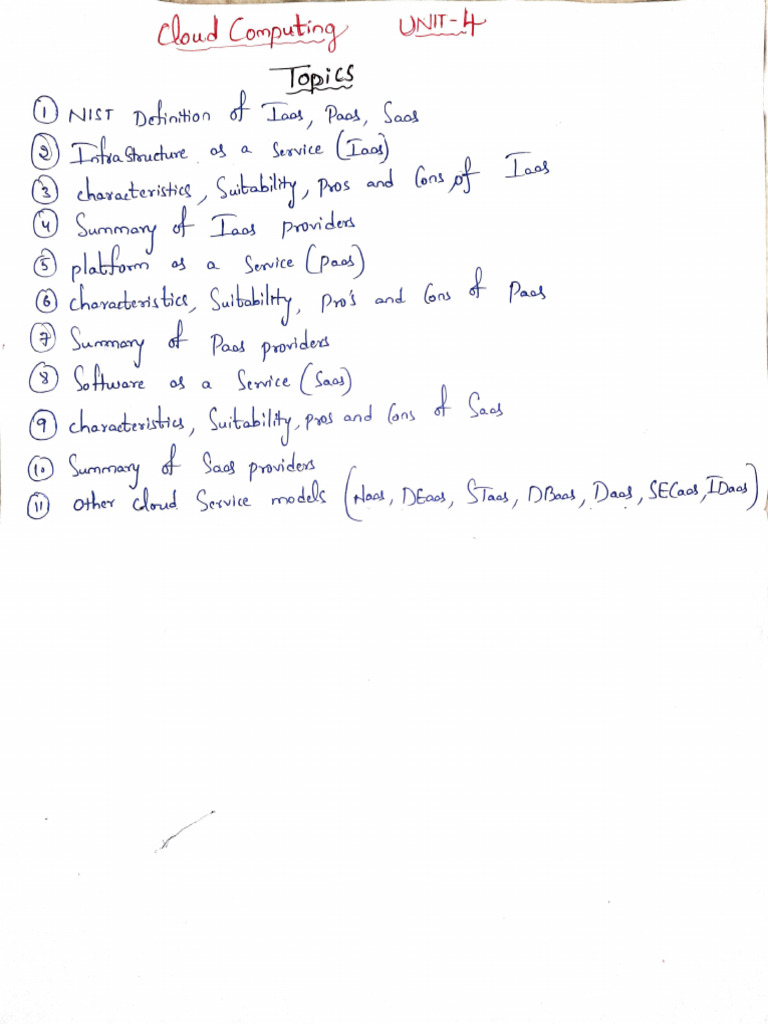 Cloud Computing UNIT-4
Topics
① NIST Definition of Iaas, Paas, Saas
② Infrastructure as a Service (Iaas)
③ characteristics, Suitability, Pros and Cons of Iaas
④ Summary of Iaas providers
⑤ platform as a Service (paas)
⑥ characteristics, Suitability, pro's and Cons of Paas
⑦ Summary of Paas providers
⑧ Software as a Service (Saas)
⑨ characteristics, Suitability, pros and Cons of Saas
⑩ Summary of Saas providers
⑪ other cloud Service models (Naas, DEaas, STaas, DBaas, Daas, SECaas, IDaas)